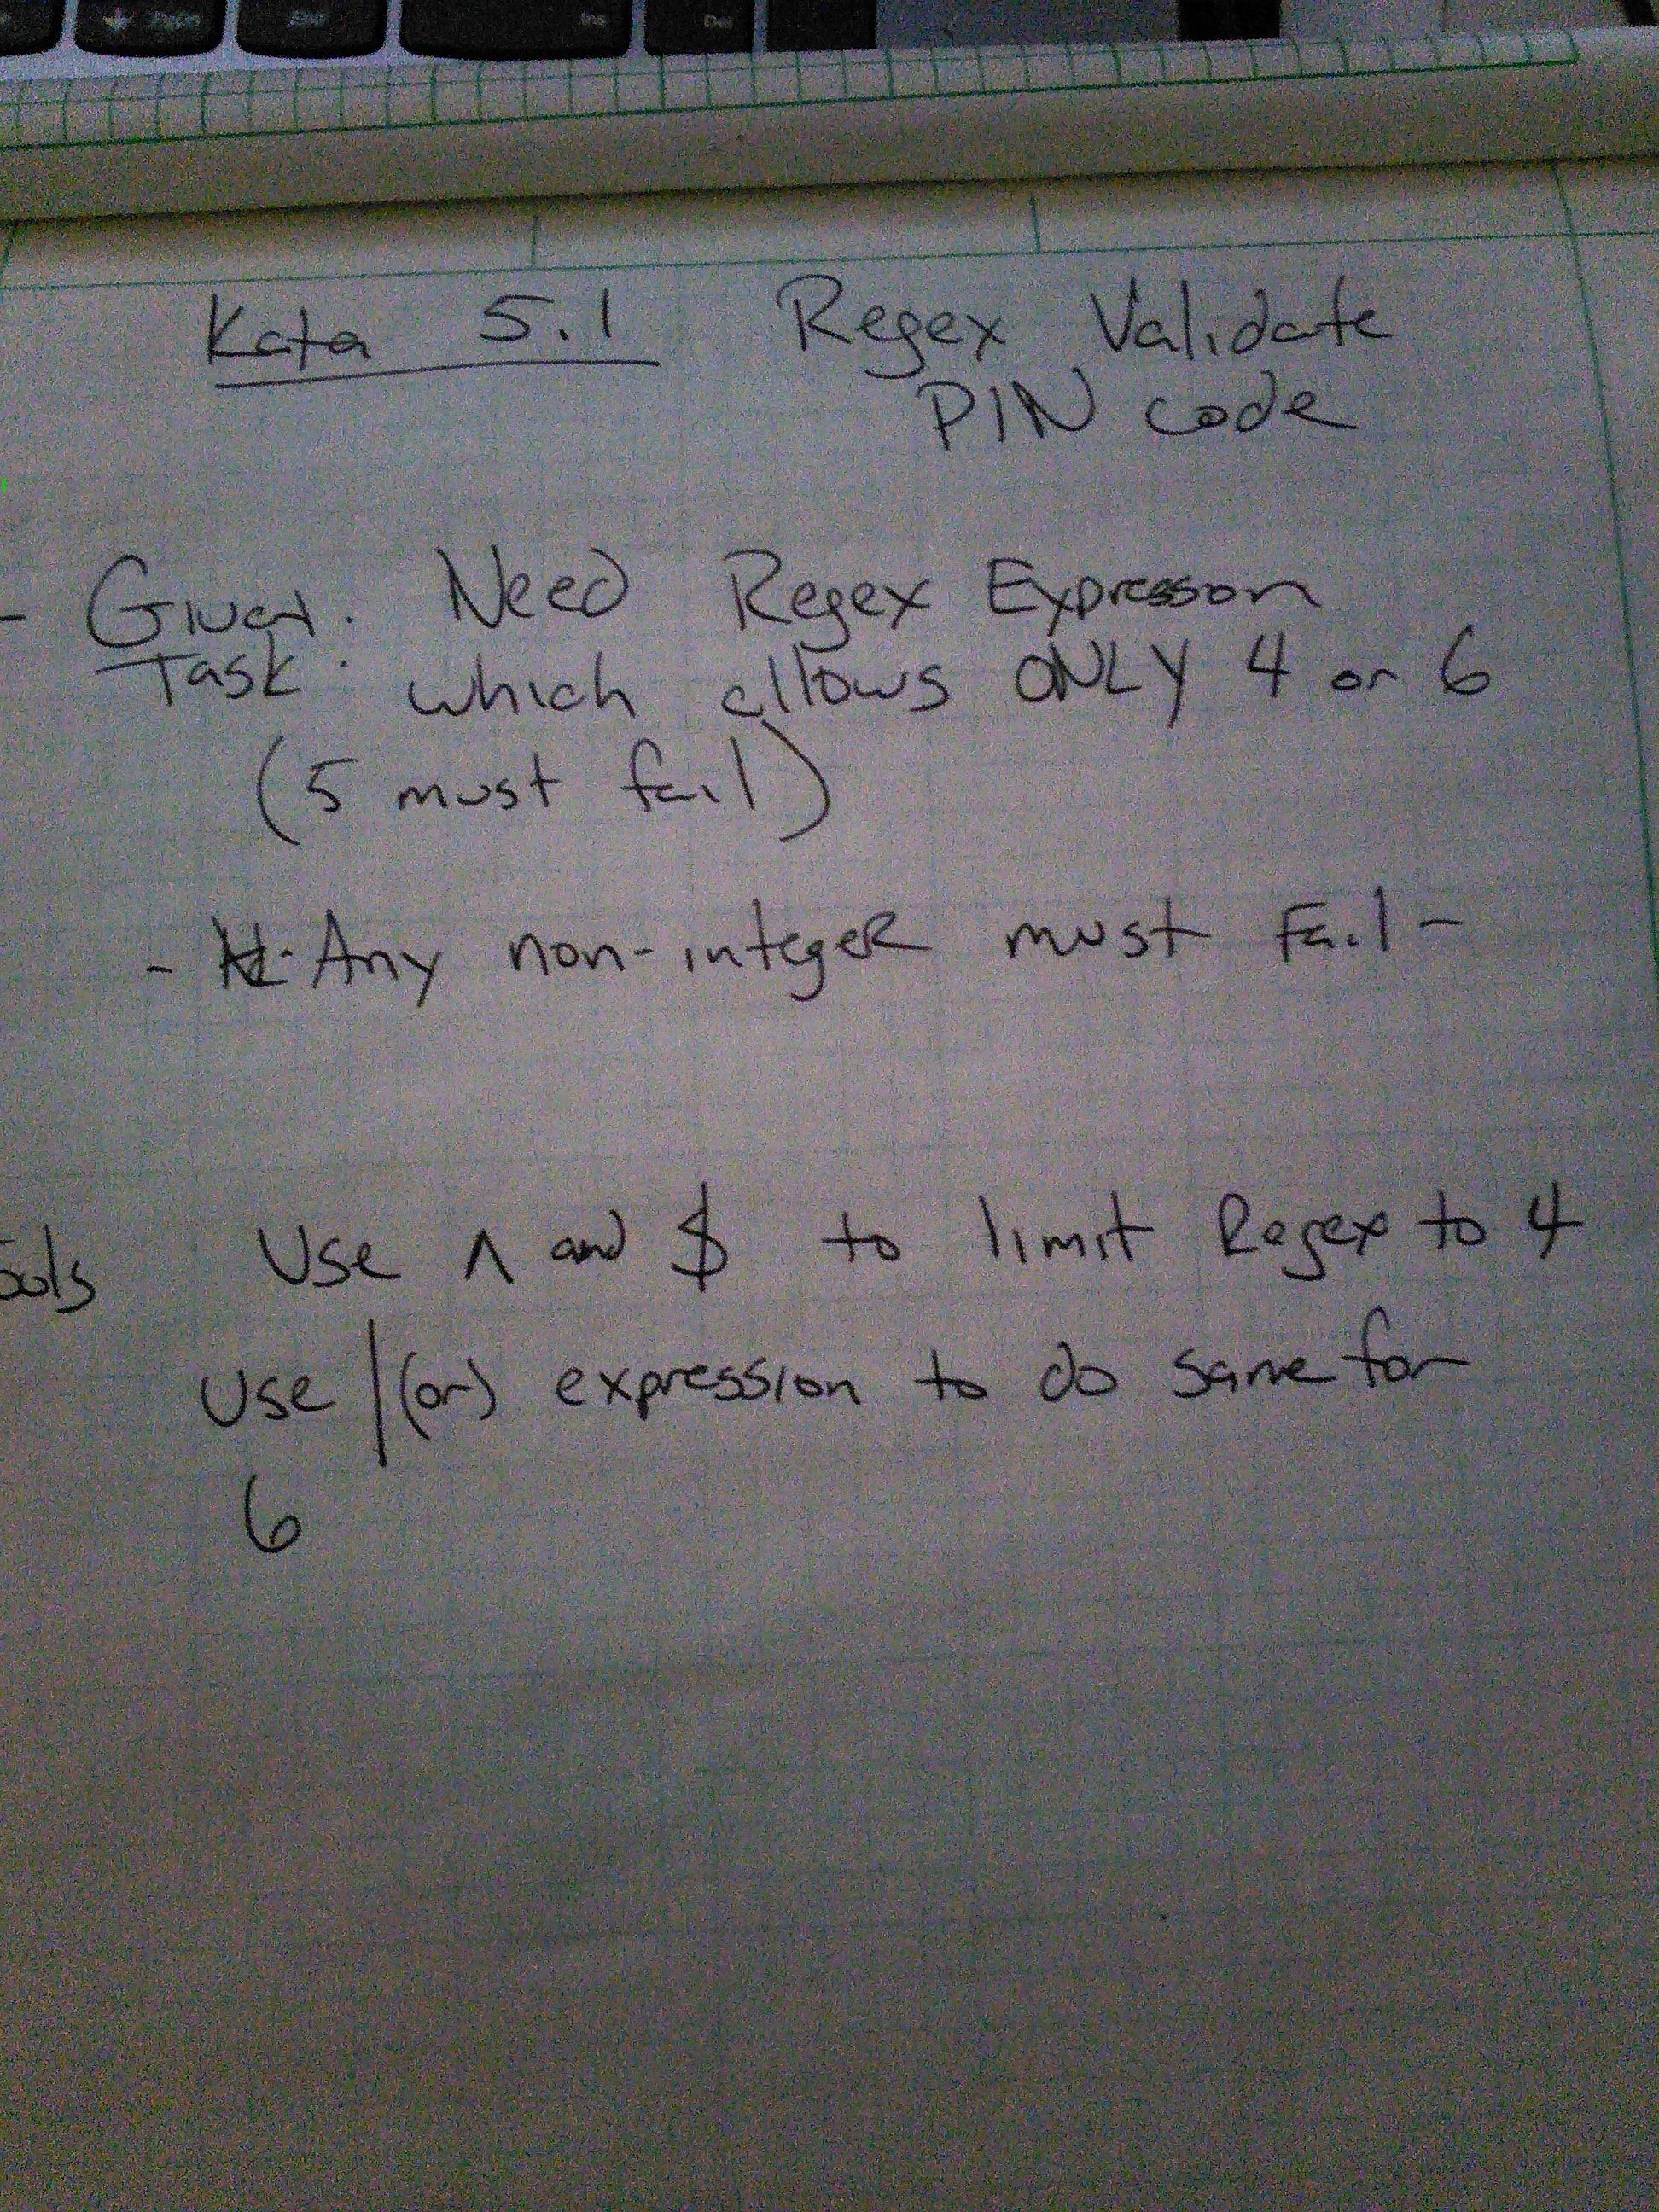 Ins
Del
Kata 5.1 Regex Validate
PIN code
- Given: Need Regex Expresson
Task: which allows ONLY 4 or 6
(5 must fail)
- Any non-integer must Fail -
Use ^ and $ to limit Regex to 4
Use |(or) expression to do same for
6